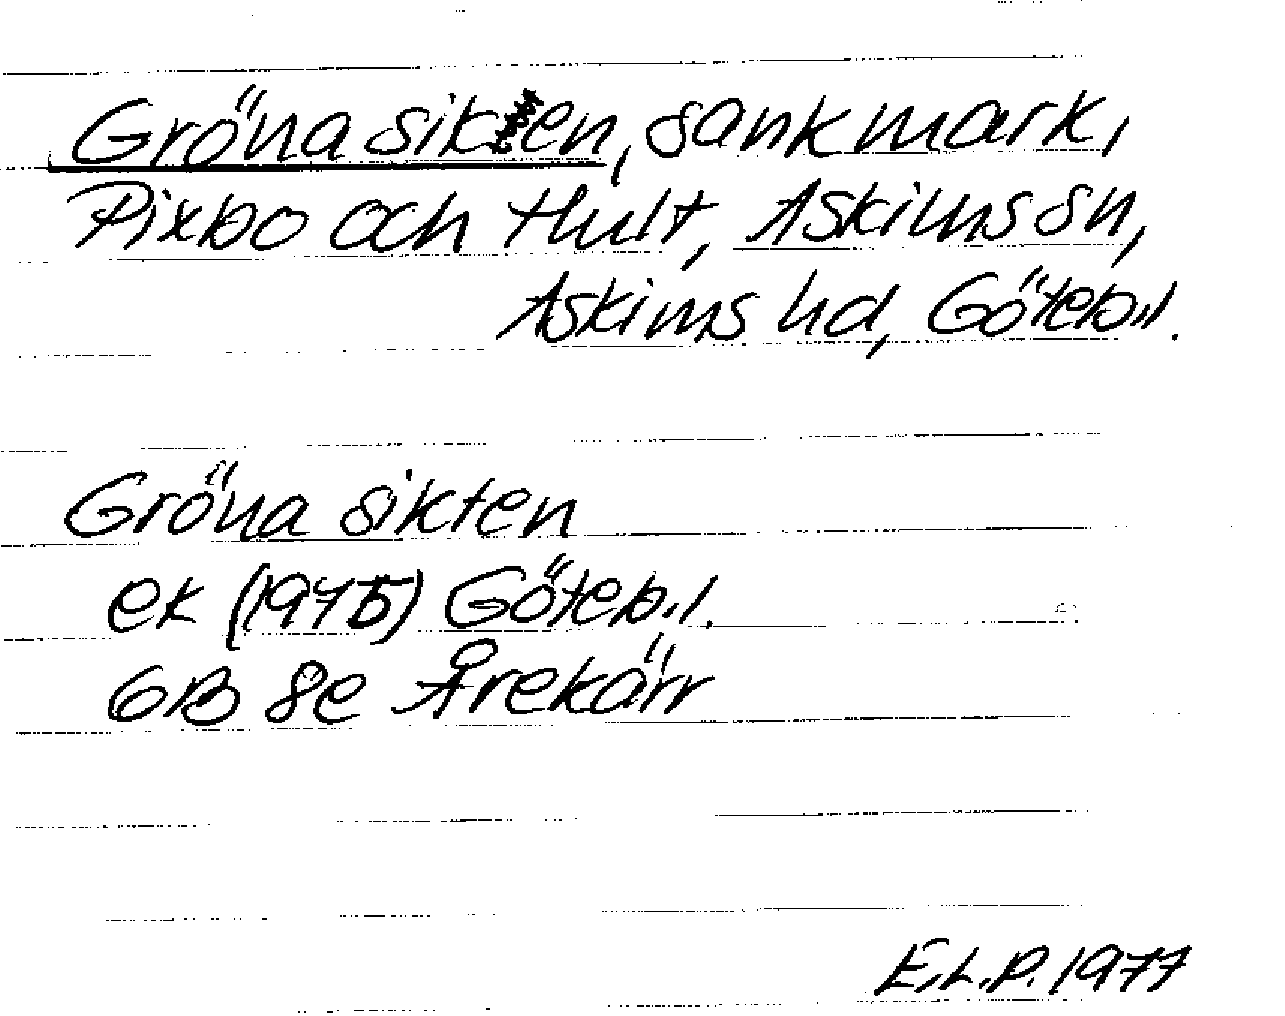 Gröna sikten, sank mark,
Pixbo och Hult, Askims sn,
Askims hd, Göteb.l.
Gröna sikten
ek (1975) Göteb.l.
6B 8e Årekärr
E.L.P. 1977